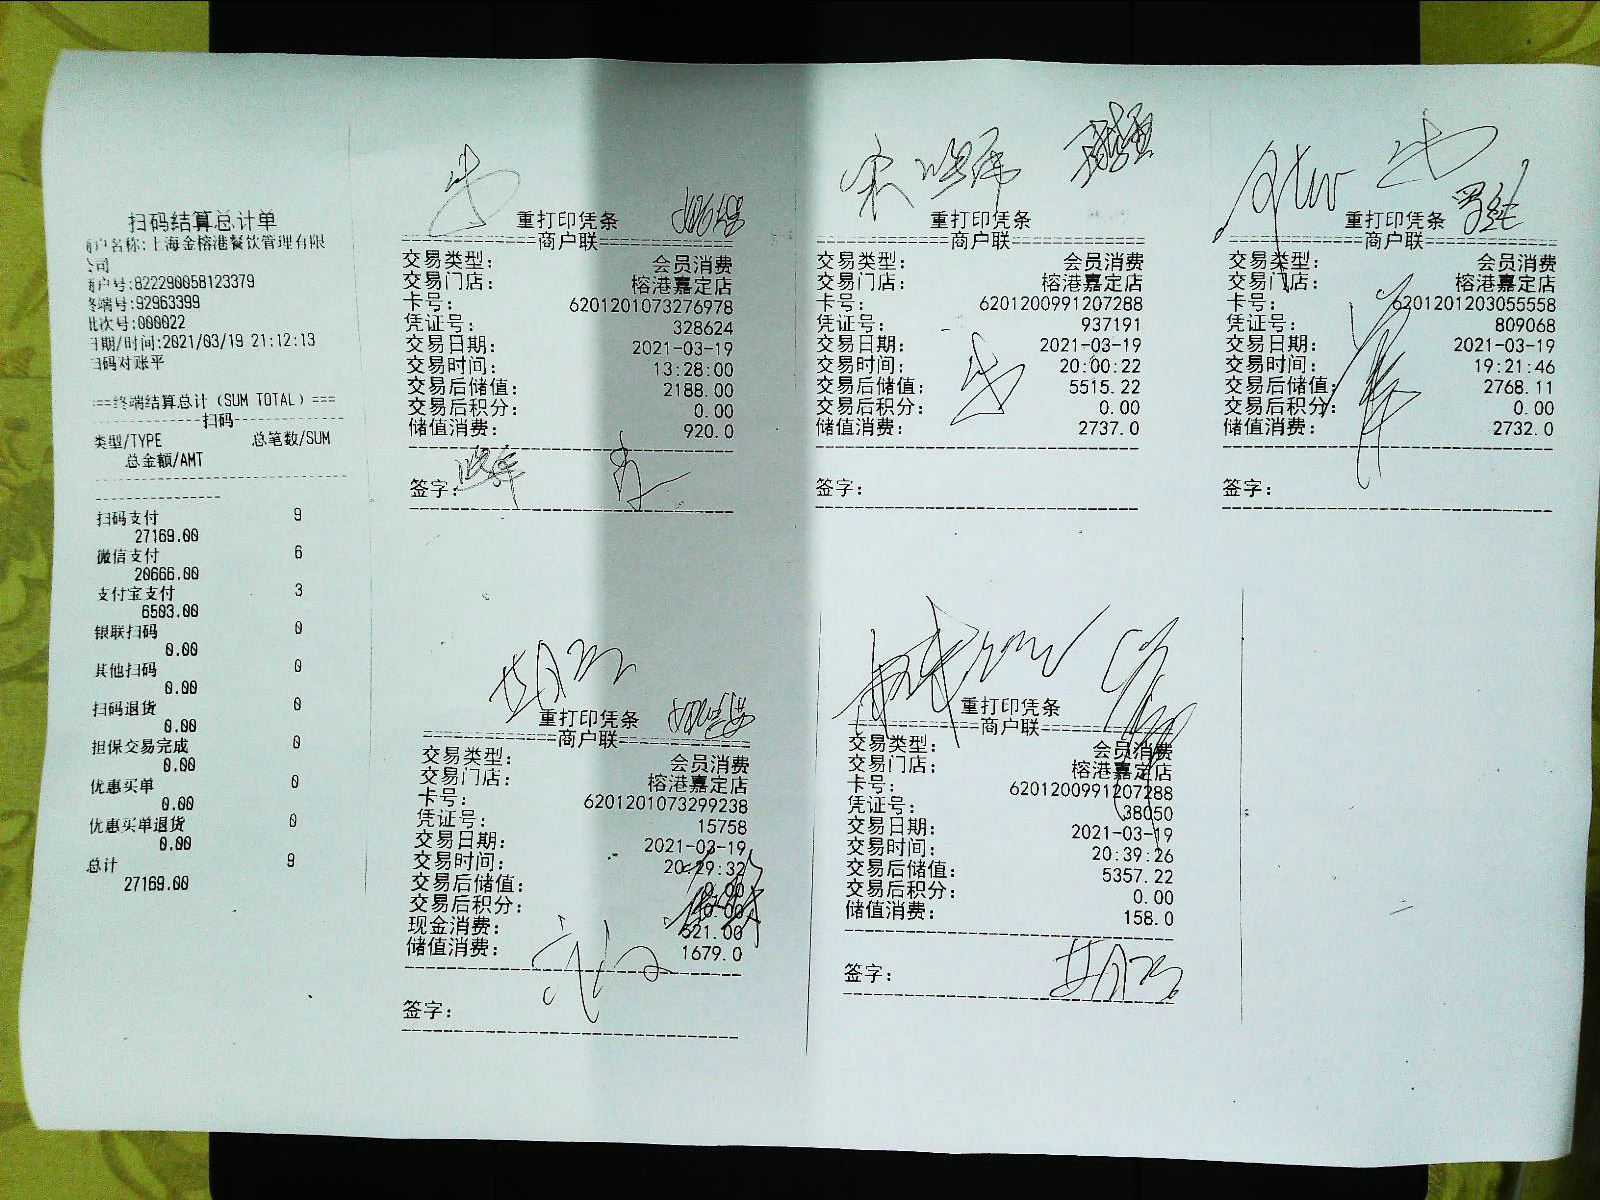 扫码结算总计单
户名称:上海金榕港餐饮管理有限
公司
商户号:822290058123379
终端号:92963399
批次号:000022
日期/时间:2021/03/19 21:12:13
扫码对账平
===终端结算总计(SUM TOTAL)===
扫码
类型/TYPE 总笔数/SUM
总金额/AMT
扫码支付 9
27169.00
微信支付 6
20666.00
支付宝支付 3
6503.00
银联扫码 0
0.00
其他扫码 0
0.00
扫码退货 0
0.00
担保交易完成 0
0.00
优惠买单 0
0.00
优惠买单退货 0
0.00
总计 9
27169.00
重打印凭条
商户联
交易类型: 会员消费
交易门店: 榕港嘉定店
卡号: 6201201073276978
凭证号: 328624
交易日期: 2021-03-19
交易时间: 13:28:00
交易后储值: 2188.00
交易后积分: 0.00
储值消费: 920.0
签字:
重打印凭条
商户联
交易类型: 会员消费
交易门店: 榕港嘉定店
卡号: 6201200991207288
凭证号: 937191
交易日期: 2021-03-19
交易时间: 20:00:22
交易后储值: 5515.22
交易后积分: 0.00
储值消费: 2737.0
签字:
重打印凭条
商户联
交易类型: 会员消费
交易门店: 榕港嘉定店
卡号: 6201201203055558
凭证号: 809068
交易日期: 2021-03-19
交易时间: 19:21:46
交易后储值: 2768.11
交易后积分: 0.00
储值消费: 2732.0
签字:
重打印凭条
商户联
交易类型: 会员消费
交易门店: 榕港嘉定店
卡号: 6201201073299238
凭证号: 15758
交易日期: 2021-03-19
交易时间: 20:29:32
交易后储值: 0.00
交易后积分: 0.00
现金消费: 521.00
储值消费: 1679.0
签字:
重打印凭条
商户联
交易类型: 会员消费
交易门店: 榕港嘉定店
卡号: 6201200991207288
凭证号: 38050
交易日期: 2021-03-19
交易时间: 20:39:26
交易后储值: 5357.22
交易后积分: 0.00
储值消费: 158.0
签字: